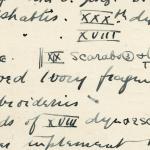 shabtis. XXXth dy
" XVIII
". XIX scarabs
ved Ivory fragm
broideries
ds of XVIII dynas
implement